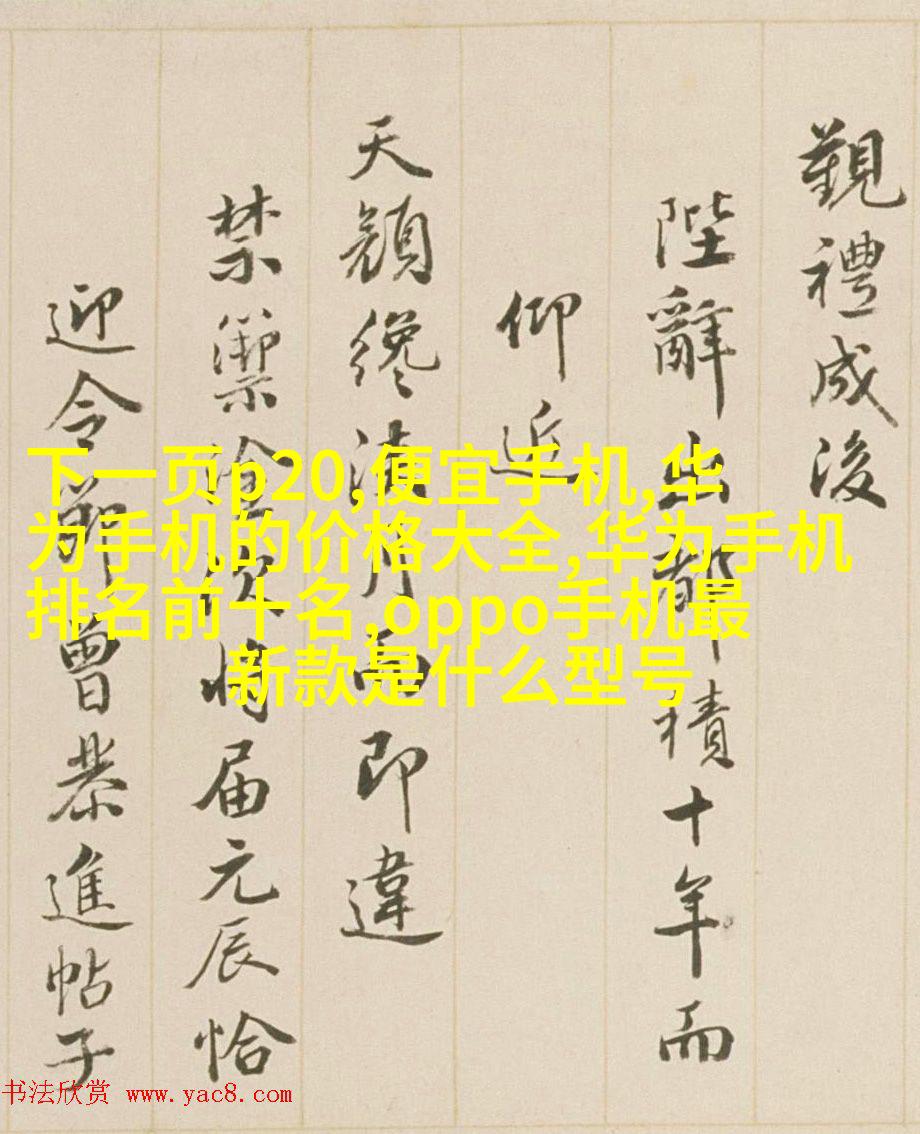 觐禮成後
陛辭出都積十年而
仰近
天顏纔浹月而即違
禁籞塗次將届元辰恰
迎令節曾恭進帖子
下一页p20,便宜手机,华
为手机的价格大全,华为手机
排名前十名,oppo手机最
新款是什么型号
书法欣赏 www.yac8.com